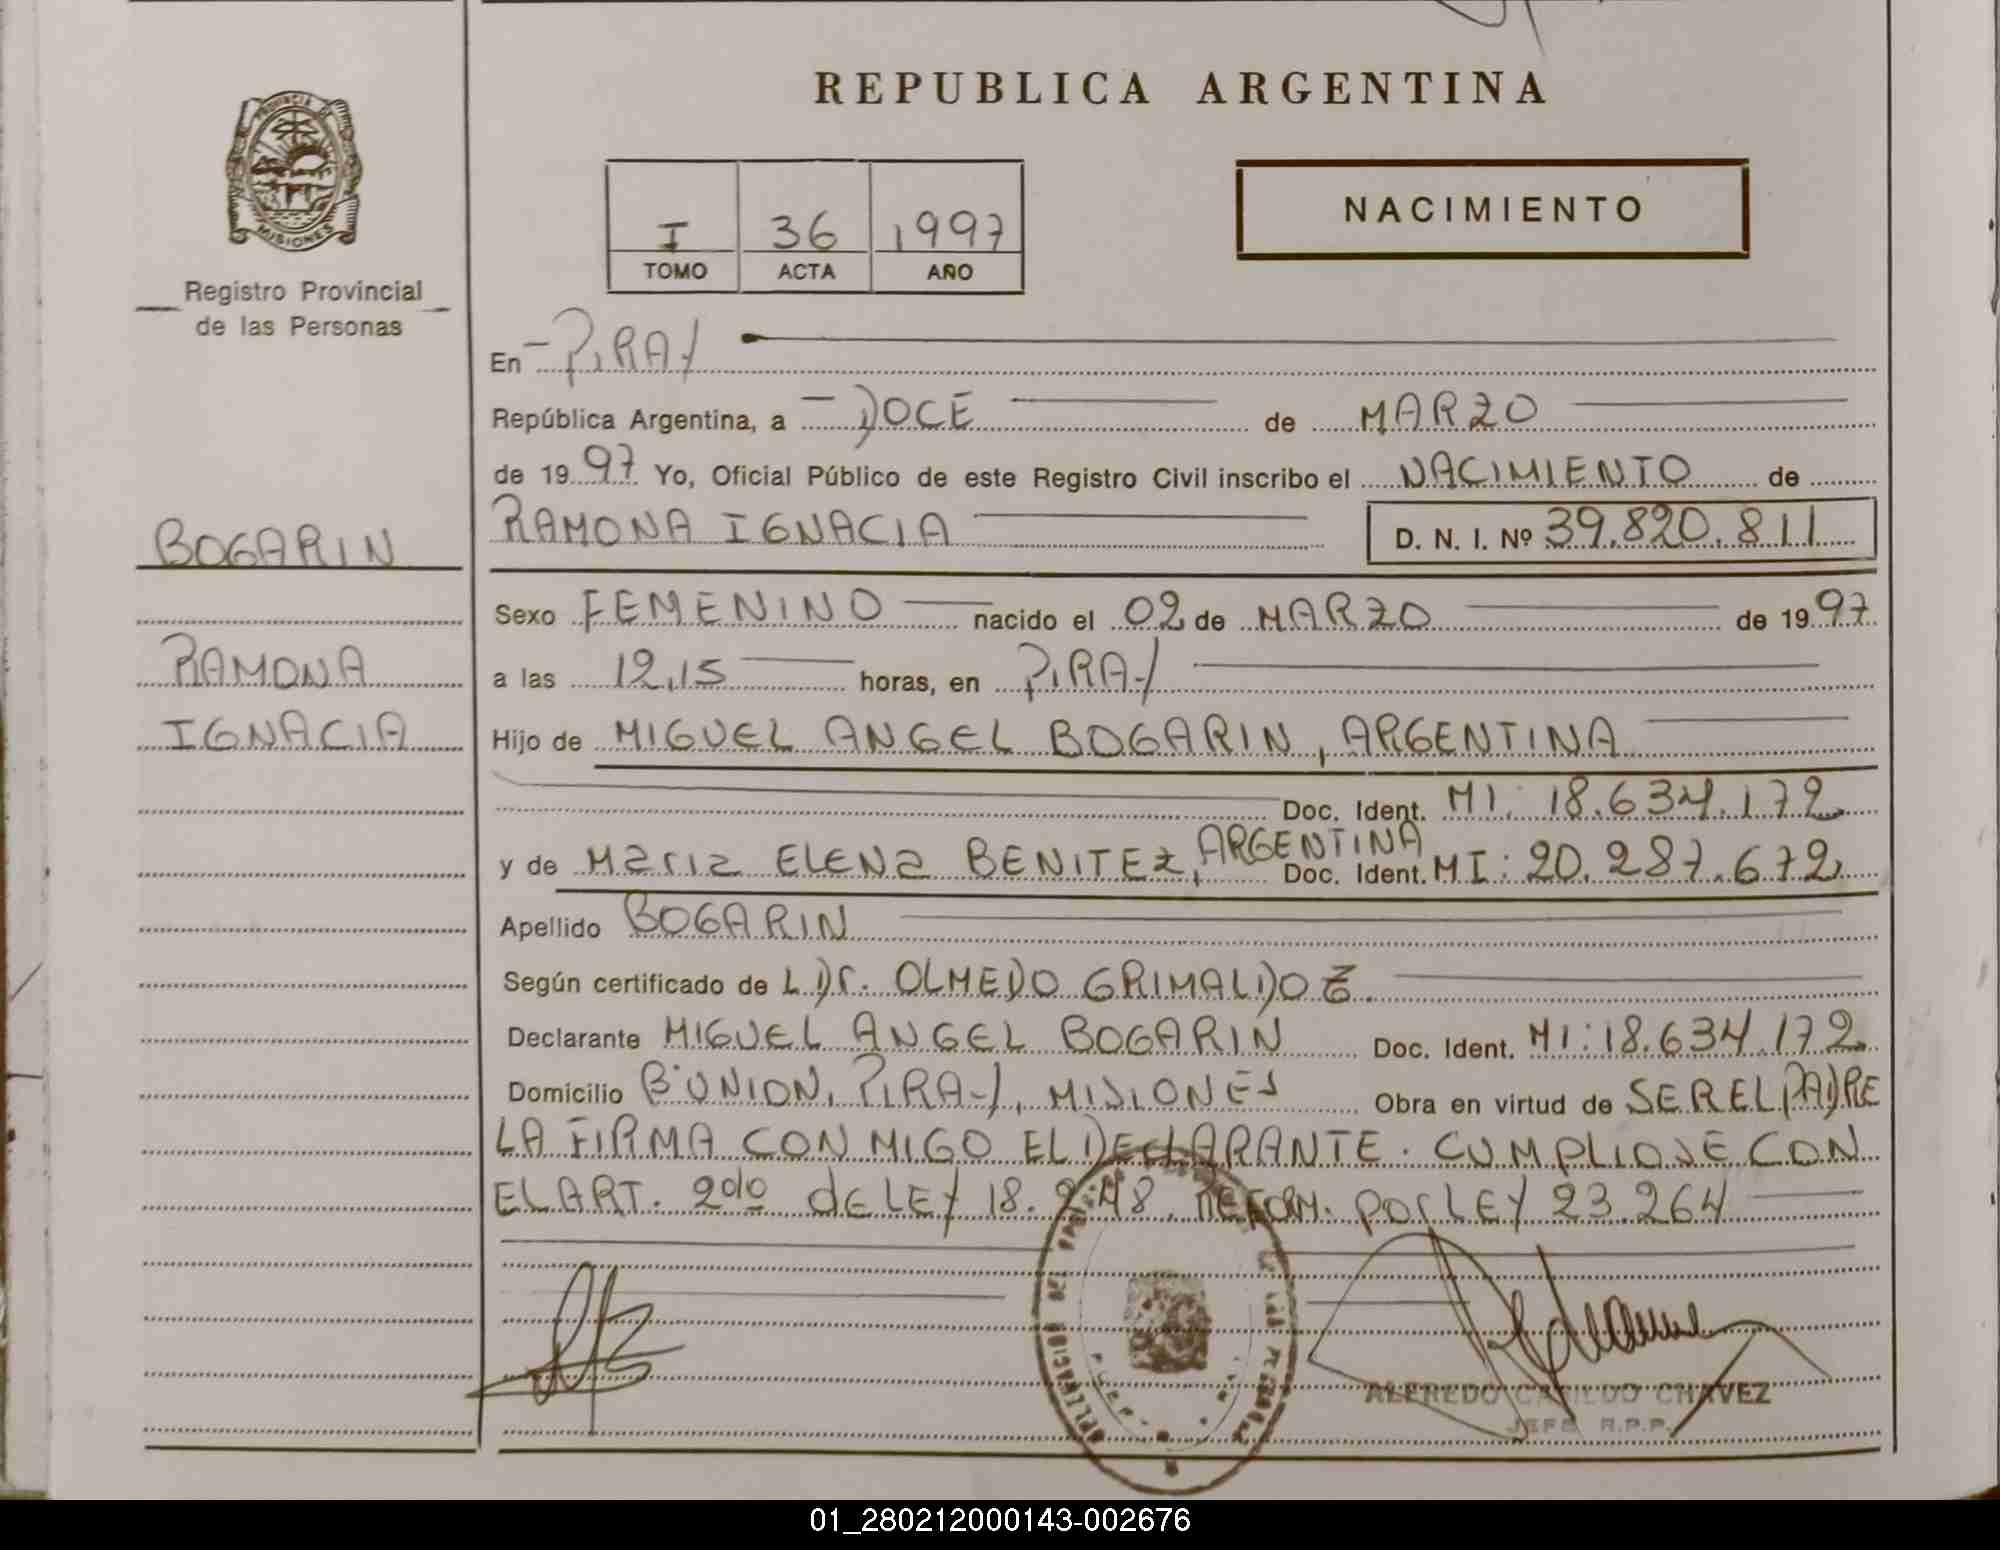 REPUBLICA ARGENTINA
PROVINCIA DE
MISIONES
Registro Provincial
de las Personas
I 36 1997
TOMO ACTA AÑO
NACIMIENTO
En PIRAY
República Argentina, a DOCE de MARZO
de 1997 Yo, Oficial Público de este Registro Civil inscribo el NACIMIENTO de
RAMONA IGNACIA D. N. I. Nº 39.820.811
BOGARIN
RAMONA
IGNACIA
Sexo FEMENINO nacido el 02 de MARZO de 1997
a las 12,15 horas, en PIRAY
Hijo de MIGUEL ANGEL BOGARIN, ARGENTINA
Doc. Ident. MI: 18.634.172
y de Maria ELENA BENITEZ, ARGENTINA Doc. Ident. MI: 20.287.672
Apellido BOGARIN
Según certificado de L Dr. OLMEDO GRIMALDO E.
Declarante MIGUEL ANGEL BOGARIN Doc. Ident. MI: 18.634.172
Domicilio Bº UNION, PIRAY, MISIONES Obra en virtud de SER EL PADRE
LA FIRMA CON MIGO EL DECLARANTE. CUMPLIOSE CON
EL ART. 2do de LEY 18.248. REFORM. POR LEY 23.264
ALFREDO CHAVEZ
JEFE R.P.P.
01_280212000143-002676